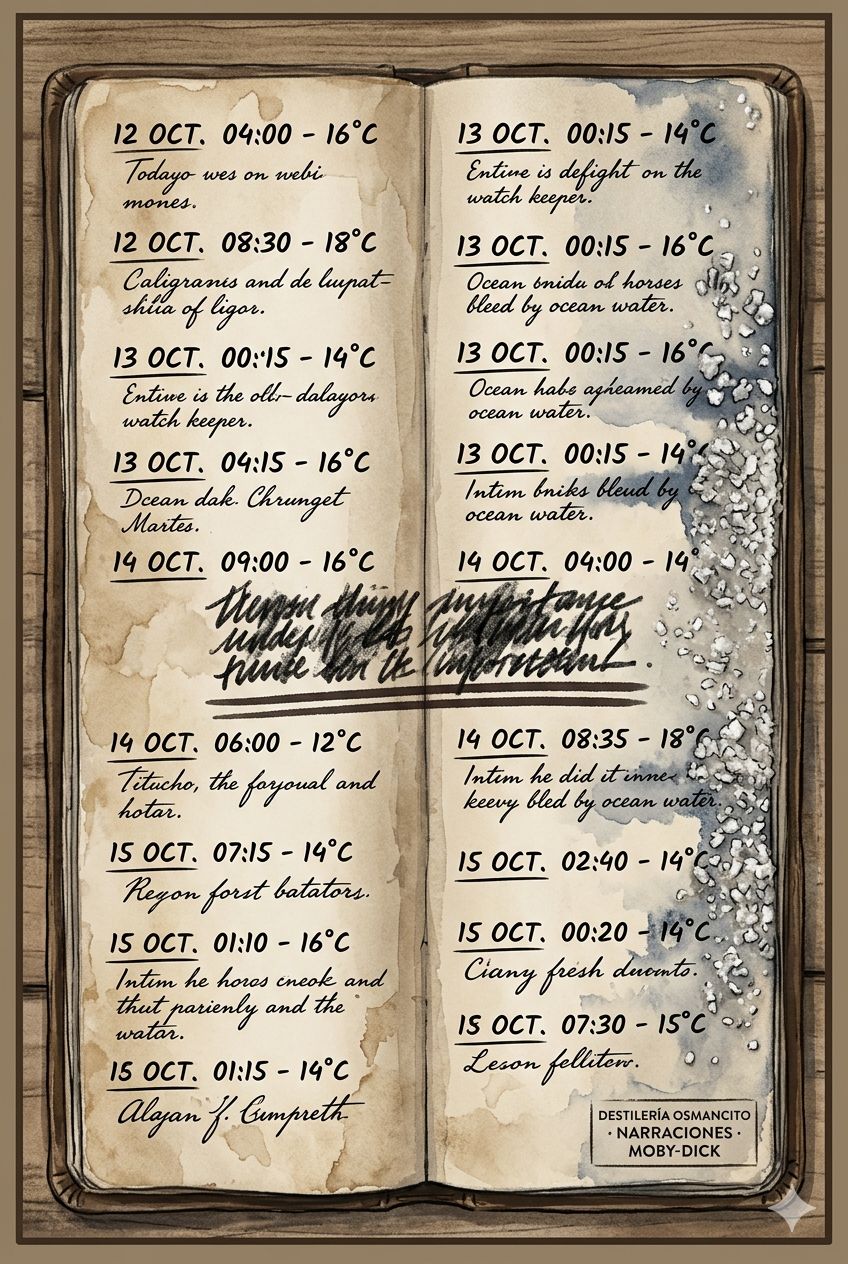 12 OCT. 04:00 - 16°C
Todayo wes on webi
mones.
12 OCT. 08:30 - 18°C
Caligranis and de
of ligor.
13 OCT. 00:15 - 14°C
Entiwe is the dalayors
watch keeper.
13 OCT. 04:15 - 16°C
Dcean dak. Chrunget
Martes.
14 OCT. 09:00 - 16°C
14 OCT. 06:00 - 12°C
Titucho, the foryoual and
hotar.
15 OCT. 07:15 - 14°C
Reyon forst batators.
15 OCT. 01:10 - 16°C
Intim he horos cneok and
thut parienly and the
watar.
15 OCT. 01:15 - 14°C
Alajan
13 OCT. 00:15 - 14°C
Entiwe is defight on the
watch keeper.
13 OCT. 00:15 - 16°C
Ocean of horses
bleed by ocean water.
13 OCT. 00:15 - 16°C
Ocean habe by
ocean water.
13 OCT. 00:15 - 14°
Intim bniks bleud by
ocean water.
14 OCT. 04:00 - 14°
14 OCT. 08:35 - 18°C
Intim he did it
keevy bled by ocean water.
15 OCT. 02:40 - 14°C
15 OCT. 00:20 - 14°C
Ciany fresh
15 OCT. 07:30 - 15°C
Leson
DESTILERÍA OSMANCITO
· NARRACIONES ·
MOBY-DICK